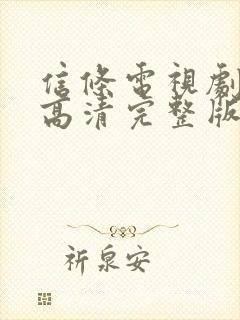 信條電視劇
高清完整版
祈泉安